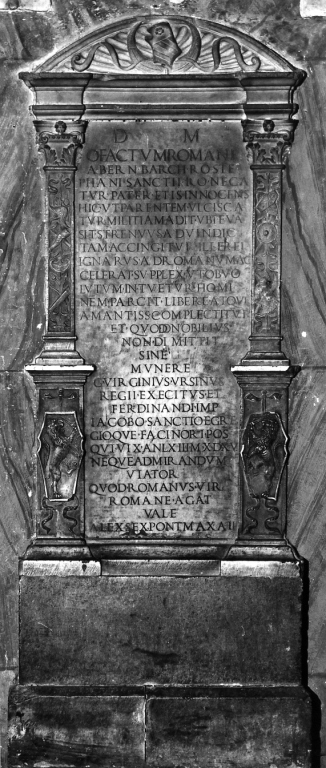 D M
O FACTVM ROMANI
A BERN BARCH ROSTE
PHANI SANCTII RO NECA
TVR PATER ET IS INNOCENS
HIC VT PARENTEM VLCISCA
TVR MILITIAM ADIT VBI EVA
SIT STRENVVS AD VINDIC
TAM ACCINGITVR ILLE REI
IGNARVS AD ROMANVM AC
CELERAT SVPPLEX VT OBVO
LVTVM INTVETVR HOMI
NEM PARCIT LIBERE AT QVI
AMANTISS COMPLECTITVR
ET QVOD NOBILIVS
NON DIMITTIT
SINE
MVNERE
C VIRGINIVS VRSINVS
REGII EXECITVS ET
FERDINAND IMP
IACOBO SANCTIO EGRE
GIOQVE FACINORI POS
QVI VIX AN LXIII M X D XV
NEQVE ADMIRANDVM
VIATOR
QVOD ROMANVS VIR
ROMANE AGAT
VALE
ALEX SEX PONT MAX A II